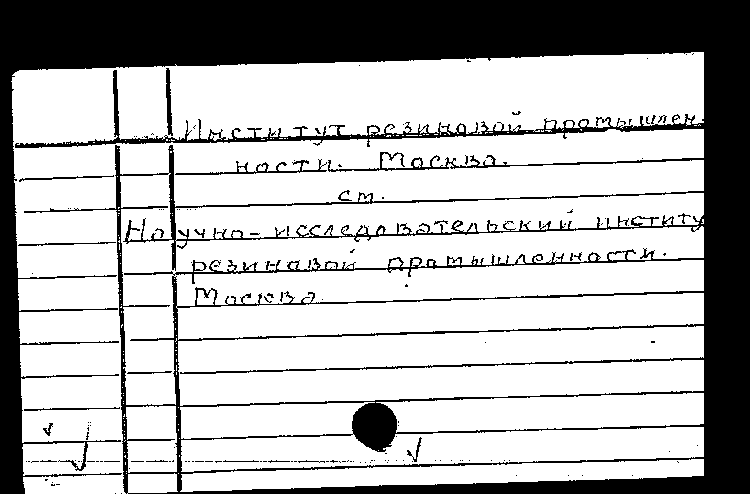 Институт резиновой промышлен-
ности. Москва.
см.
Научно-исследовательский институ
резиновой промышленности.
Москва.